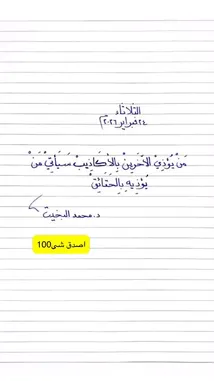 الثلاثاء
٢٤ فبراير ٢٠٢٦م
مَنْ يُؤذِي الآخَرِينْ بِالأَكَاذِيبْ سَيَأتِيْ مَنْ
يُؤذِيهِ بِالحَقَائِقْ
د. محمد البخيت
اصدق شي100